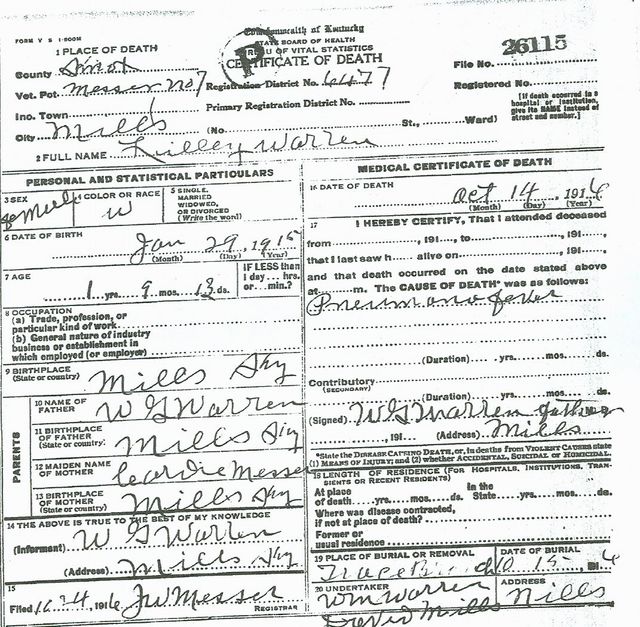 FORM V S 1-500M
Commonwealth of Kentucky
STATE BOARD OF HEALTH
BUREAU OF VITAL STATISTICS
CERTIFICATE OF DEATH
1 PLACE OF DEATH
File No. 26115
County
Vet. Pct. Messer No 7
Registration District No. 6477
Registered No.
Ino. Town
Primary Registration District No.
[If death occurred in a hospital or institution, give its NAME instead of street and number.]
City Mills (No St., Ward)
2 FULL NAME Lilley Warren
PERSONAL AND STATISTICAL PARTICULARS
3 SEX
4 COLOR OR RACE W
5 SINGLE, MARRIED WIDOWED, OR DIVORCED (Write the word)
6 DATE OF BIRTH Jan 29, 1915
(Month) (Day) (Year)
7 AGE 1 yrs. 9 mos. ds.
IF LESS than 1 day... hrs. or... min.?
8 OCCUPATION
(a) Trade, profession, or
particular kind of work
(b) General nature of industry
business or establishment in
which employed (or employer)
9 BIRTHPLACE
(State or country) Mills Ky
PARENTS
10 NAME OF FATHER W G Warren
11 BIRTHPLACE OF FATHER (State or country) Mills Ky
12 MAIDEN NAME OF MOTHER Messer
13 BIRTHPLACE OF MOTHER (State or country) Mills Ky
14 THE ABOVE IS TRUE TO THE BEST OF MY KNOWLEDGE
(Informant) W G Warren
(Address) Mills Ky
15
Filed 1916 J W Messer
REGISTRAR
MEDICAL CERTIFICATE OF DEATH
16 DATE OF DEATH Oct 14, 1916
(Month) (Day) (Year)
17 I HEREBY CERTIFY, That I attended deceased
from , 191 , to , 191 ,
that I last saw h alive on , 191 ,
and that death occurred on the date stated above
at m. The CAUSE OF DEATH* was as follows:
Pneumono fever
(Duration) yrs. mos. ds.
Contributory
(SECONDARY)
(Duration) yrs. mos. ds.
(Signed) W G Warren father
, 191 (Address) Mills
*State the DISEASE CAUSING DEATH, or, in deaths from VIOLENT CAUSES state
(1) MEANS OF INJURY; and (2) whether ACCIDENTAL, SUICIDAL or HOMICIDAL.
18 LENGTH OF RESIDENCE (FOR HOSPITALS, INSTITUTIONS, TRANSIENTS OR RECENT RESIDENTS)
At place of death yrs. mos. ds. In the State yrs. mos. ds.
Where was disease contracted,
if not at place of death?
Former or
usual residence
19 PLACE OF BURIAL OR REMOVAL
DATE OF BURIAL
15, 1916
20 UNDERTAKER Wm Warren
ADDRESS Mills
David Mills